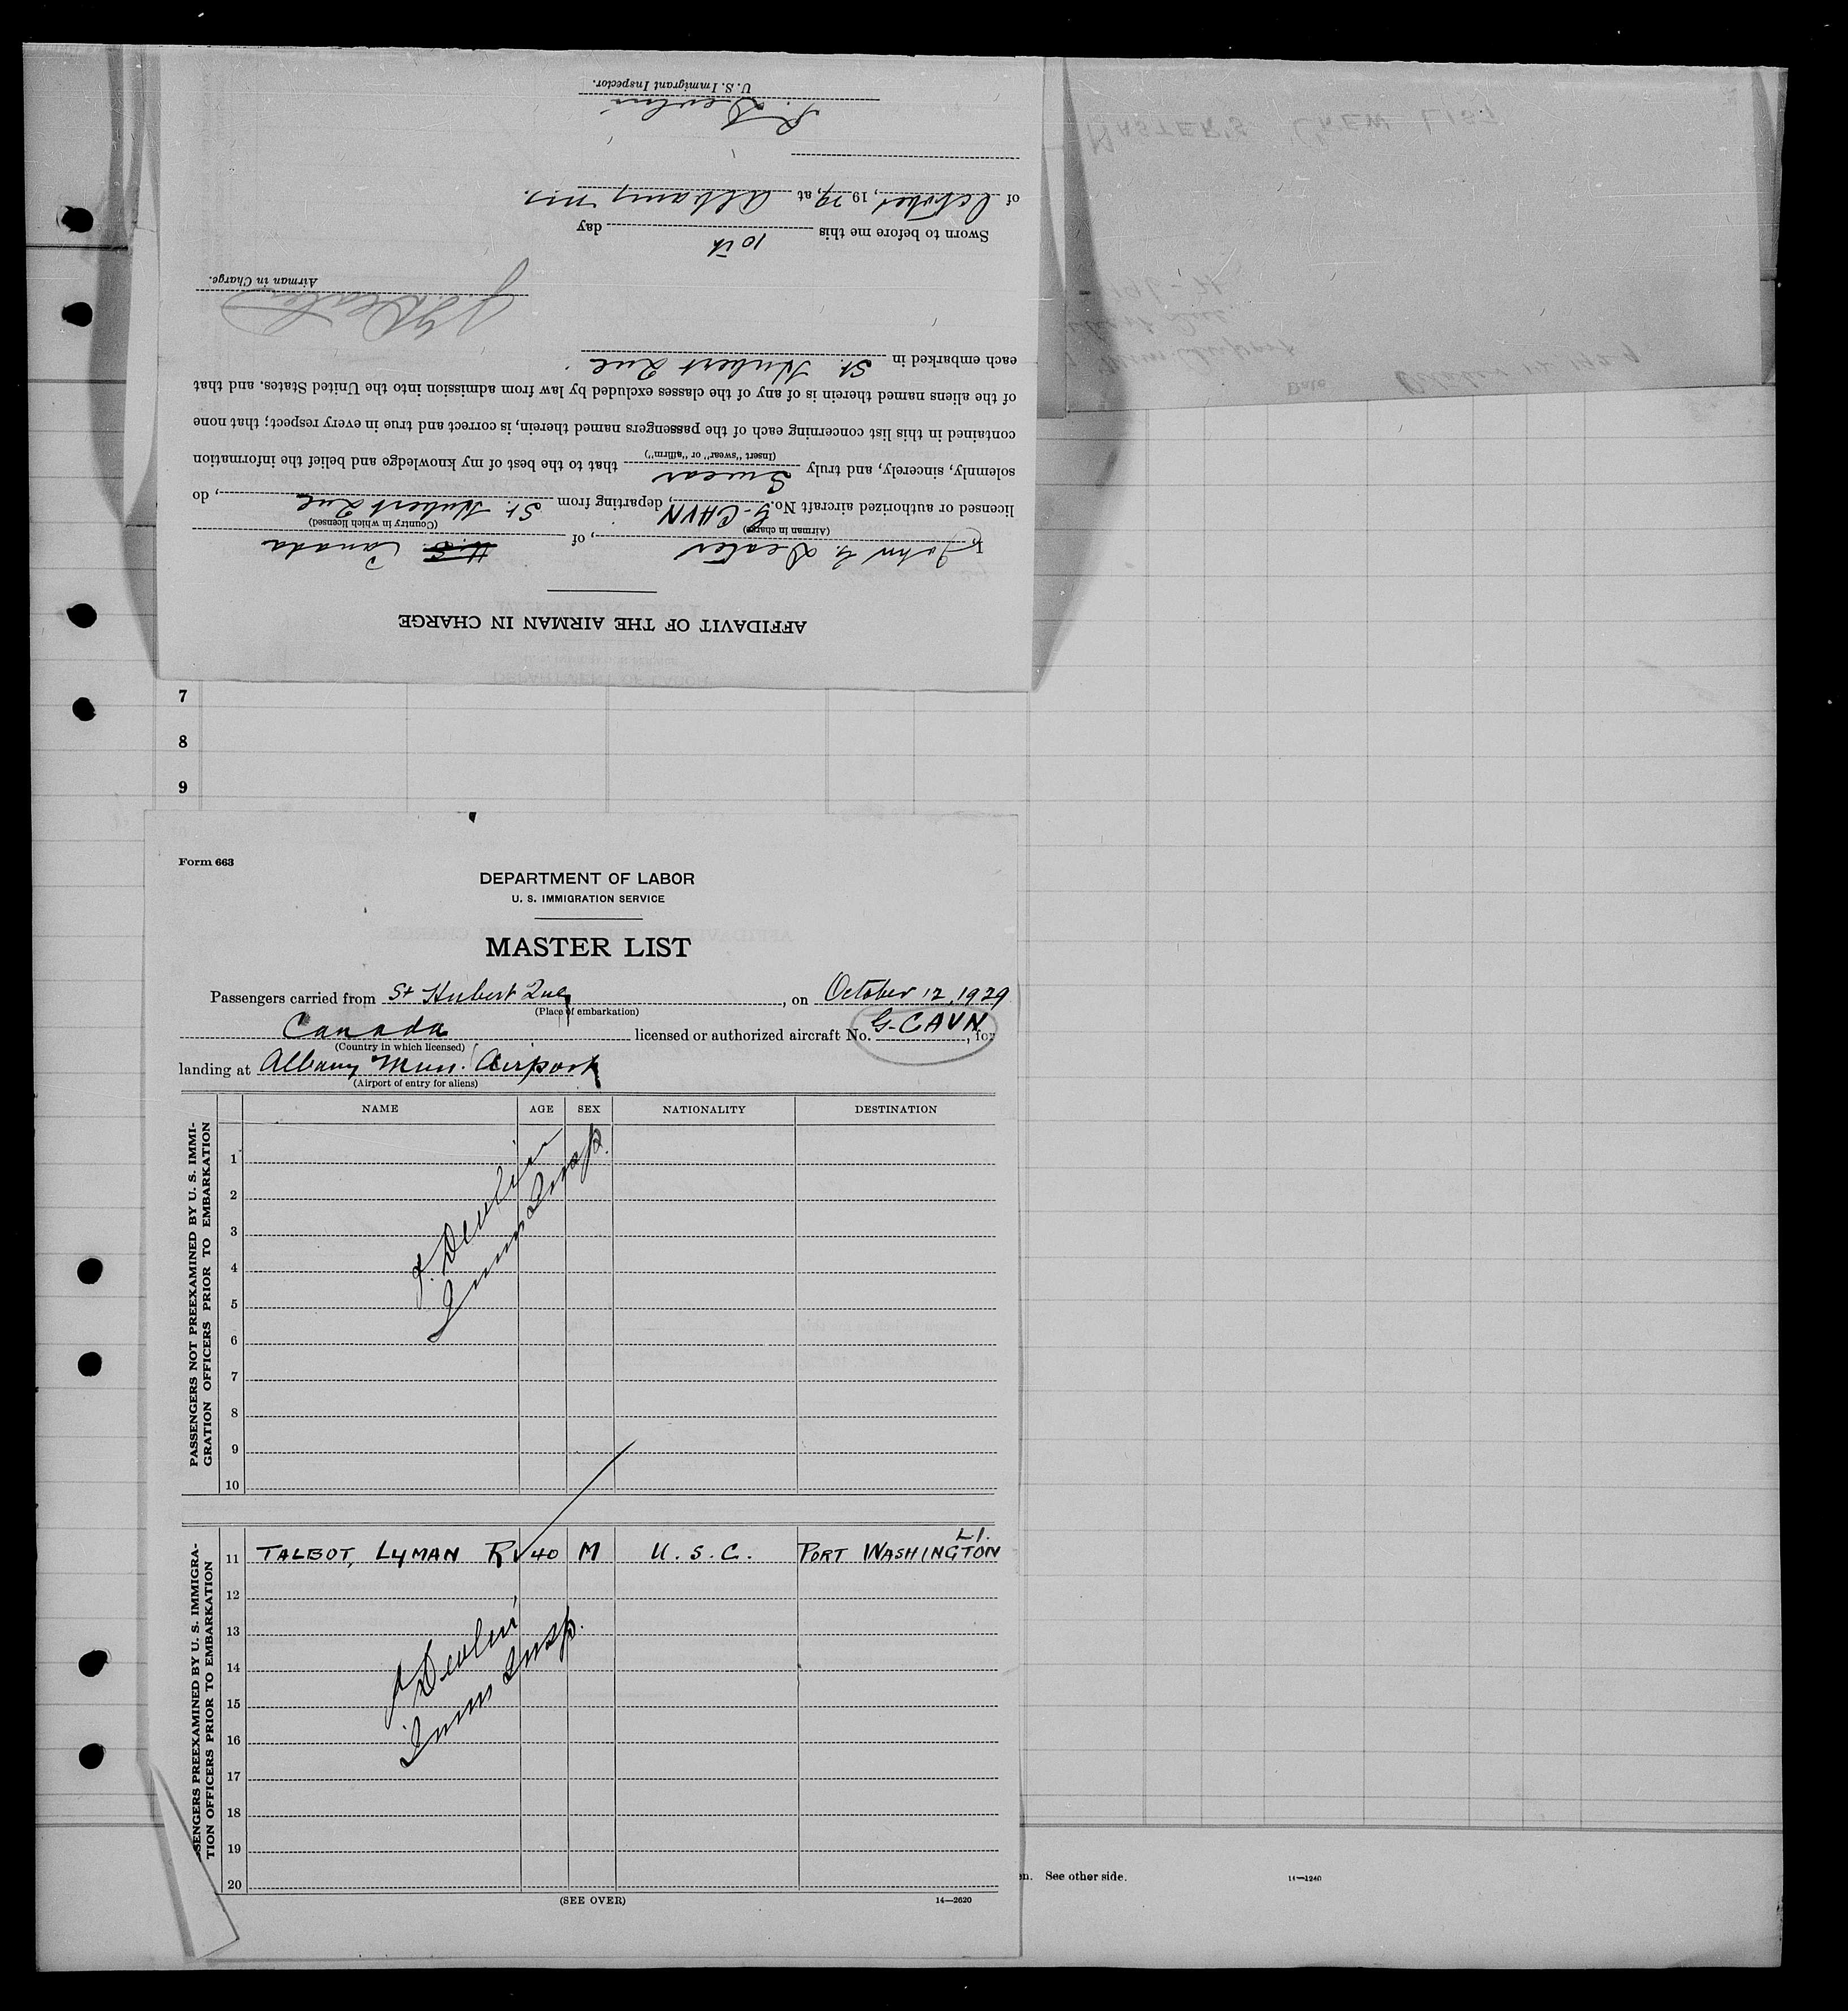 MASTER'S CREW LIST
Date October 12 1929
AFFIDAVIT OF THE AIRMAN IN CHARGE
I, John G. , of U.S. Canada
(Airman in charge) (Country in which licensed)
licensed or authorized aircraft No. G-CAVN, departing from St. Hubert Que, do
solemnly, sincerely, and truly Swear that to the best of my knowledge and belief the information
(Insert "swear" or "affirm")
contained in this list concerning each of the passengers named therein, is correct and true in every respect; that none
of the aliens named therein is of any of the classes excluded by law from admission into the United States, and that
each embarked in St. Hubert Que.
Airman in Charge.
Sworn to before me this 10th day
of October, 1929, at Albany
Devlin
U. S. Immigrant Inspector.
7
8
9
Form 663
DEPARTMENT OF LABOR
U. S. IMMIGRATION SERVICE
MASTER LIST
Passengers carried from St Hubert Que, on October 12, 1929
(Place of embarkation)
Canada licensed or authorized aircraft No. G-CAVN, for
(Country in which licensed)
landing at Albany Mun. Airport
(Airport of entry for aliens)
PASSENGERS NOT PREEXAMINED BY U. S. IMMI-
GRATION OFFICERS PRIOR TO EMBARKATION
NAME AGE SEX NATIONALITY DESTINATION
1
2
3
4
5
6
7
8
9
10
J. Devlin
Imm Insp.
SENGERS PREEXAMINED BY U. S. IMMIGRA-
TION OFFICERS PRIOR TO EMBARKATION
L.I.
11 TALBOT, LYMAN R 40 M U. S. C. PORT WASHINGTON
12
13
14
15
16
17
18
19
20
J Devlin
Imm Insp.
(SEE OVER)
14—2620
en. See other side.
14—1240